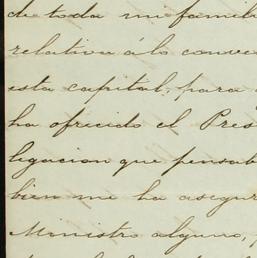 de toda mi famili
relativa á lo conve
esta capital, para
ha ofrecido el Pres
legacion que pensab
bien me ha asegur
Ministro alguno,